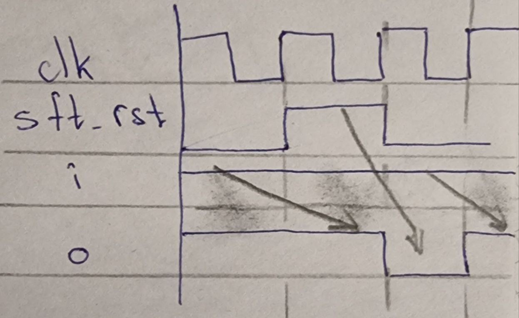 clk
sft_rst
i
o